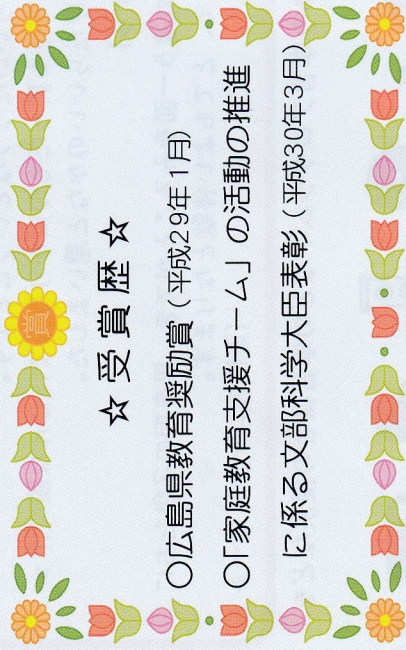 賞
☆ 受 賞 歴 ☆
○広島県教育奨励賞(平成29年1月)
○「家庭教育支援チーム」の活動の推進
に係る文部科学大臣表彰(平成30年3月)